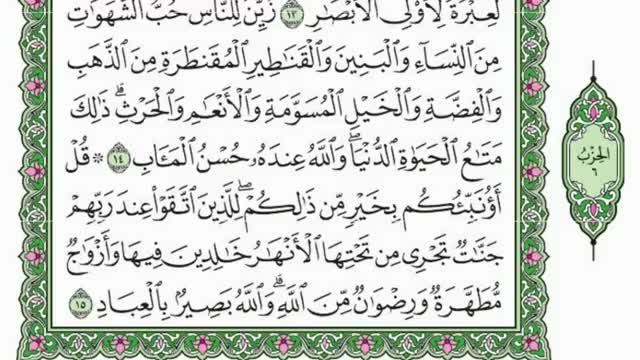 لَعِبْرَةً لِّأُوْلِي الْأَبْصَٰرِ ١٣ زُيِّنَ لِلنَّاسِ حُبُّ الشَّهَوَٰتِ
مِنَ النِّسَآءِ وَالْبَنِينَ وَالْقَنَٰطِيرِ الْمُقَنطَرَةِ مِنَ الذَّهَبِ
وَالْفِضَّةِ وَالْخَيْلِ الْمُسَوَّمَةِ وَالْأَنْعَٰمِ وَالْحَرْثِۗ ذَٰلِكَ
مَتَٰعُ الْحَيَوٰةِ الدُّنْيَاۖ وَاللَّهُ عِندَهُۥ حُسْنُ الْمَـَٔابِ ١٤ ۞ قُلْ
أَؤُنَبِّئُكُم بِخَيْرٍ مِّن ذَٰلِكُمْۖ لِلَّذِينَ اتَّقَوْا۟ عِندَ رَبِّهِمْ
جَنَّٰتٌ تَجْرِي مِن تَحْتِهَا الْأَنْهَٰرُ خَٰلِدِينَ فِيهَا وَأَزْوَٰجٌ
مُّطَهَّرَةٌ وَرِضْوَٰنٌ مِّنَ اللَّهِۗ وَاللَّهُ بَصِيرٌۢ بِالْعِبَادِ ١٥
الحِزْبُ
٦